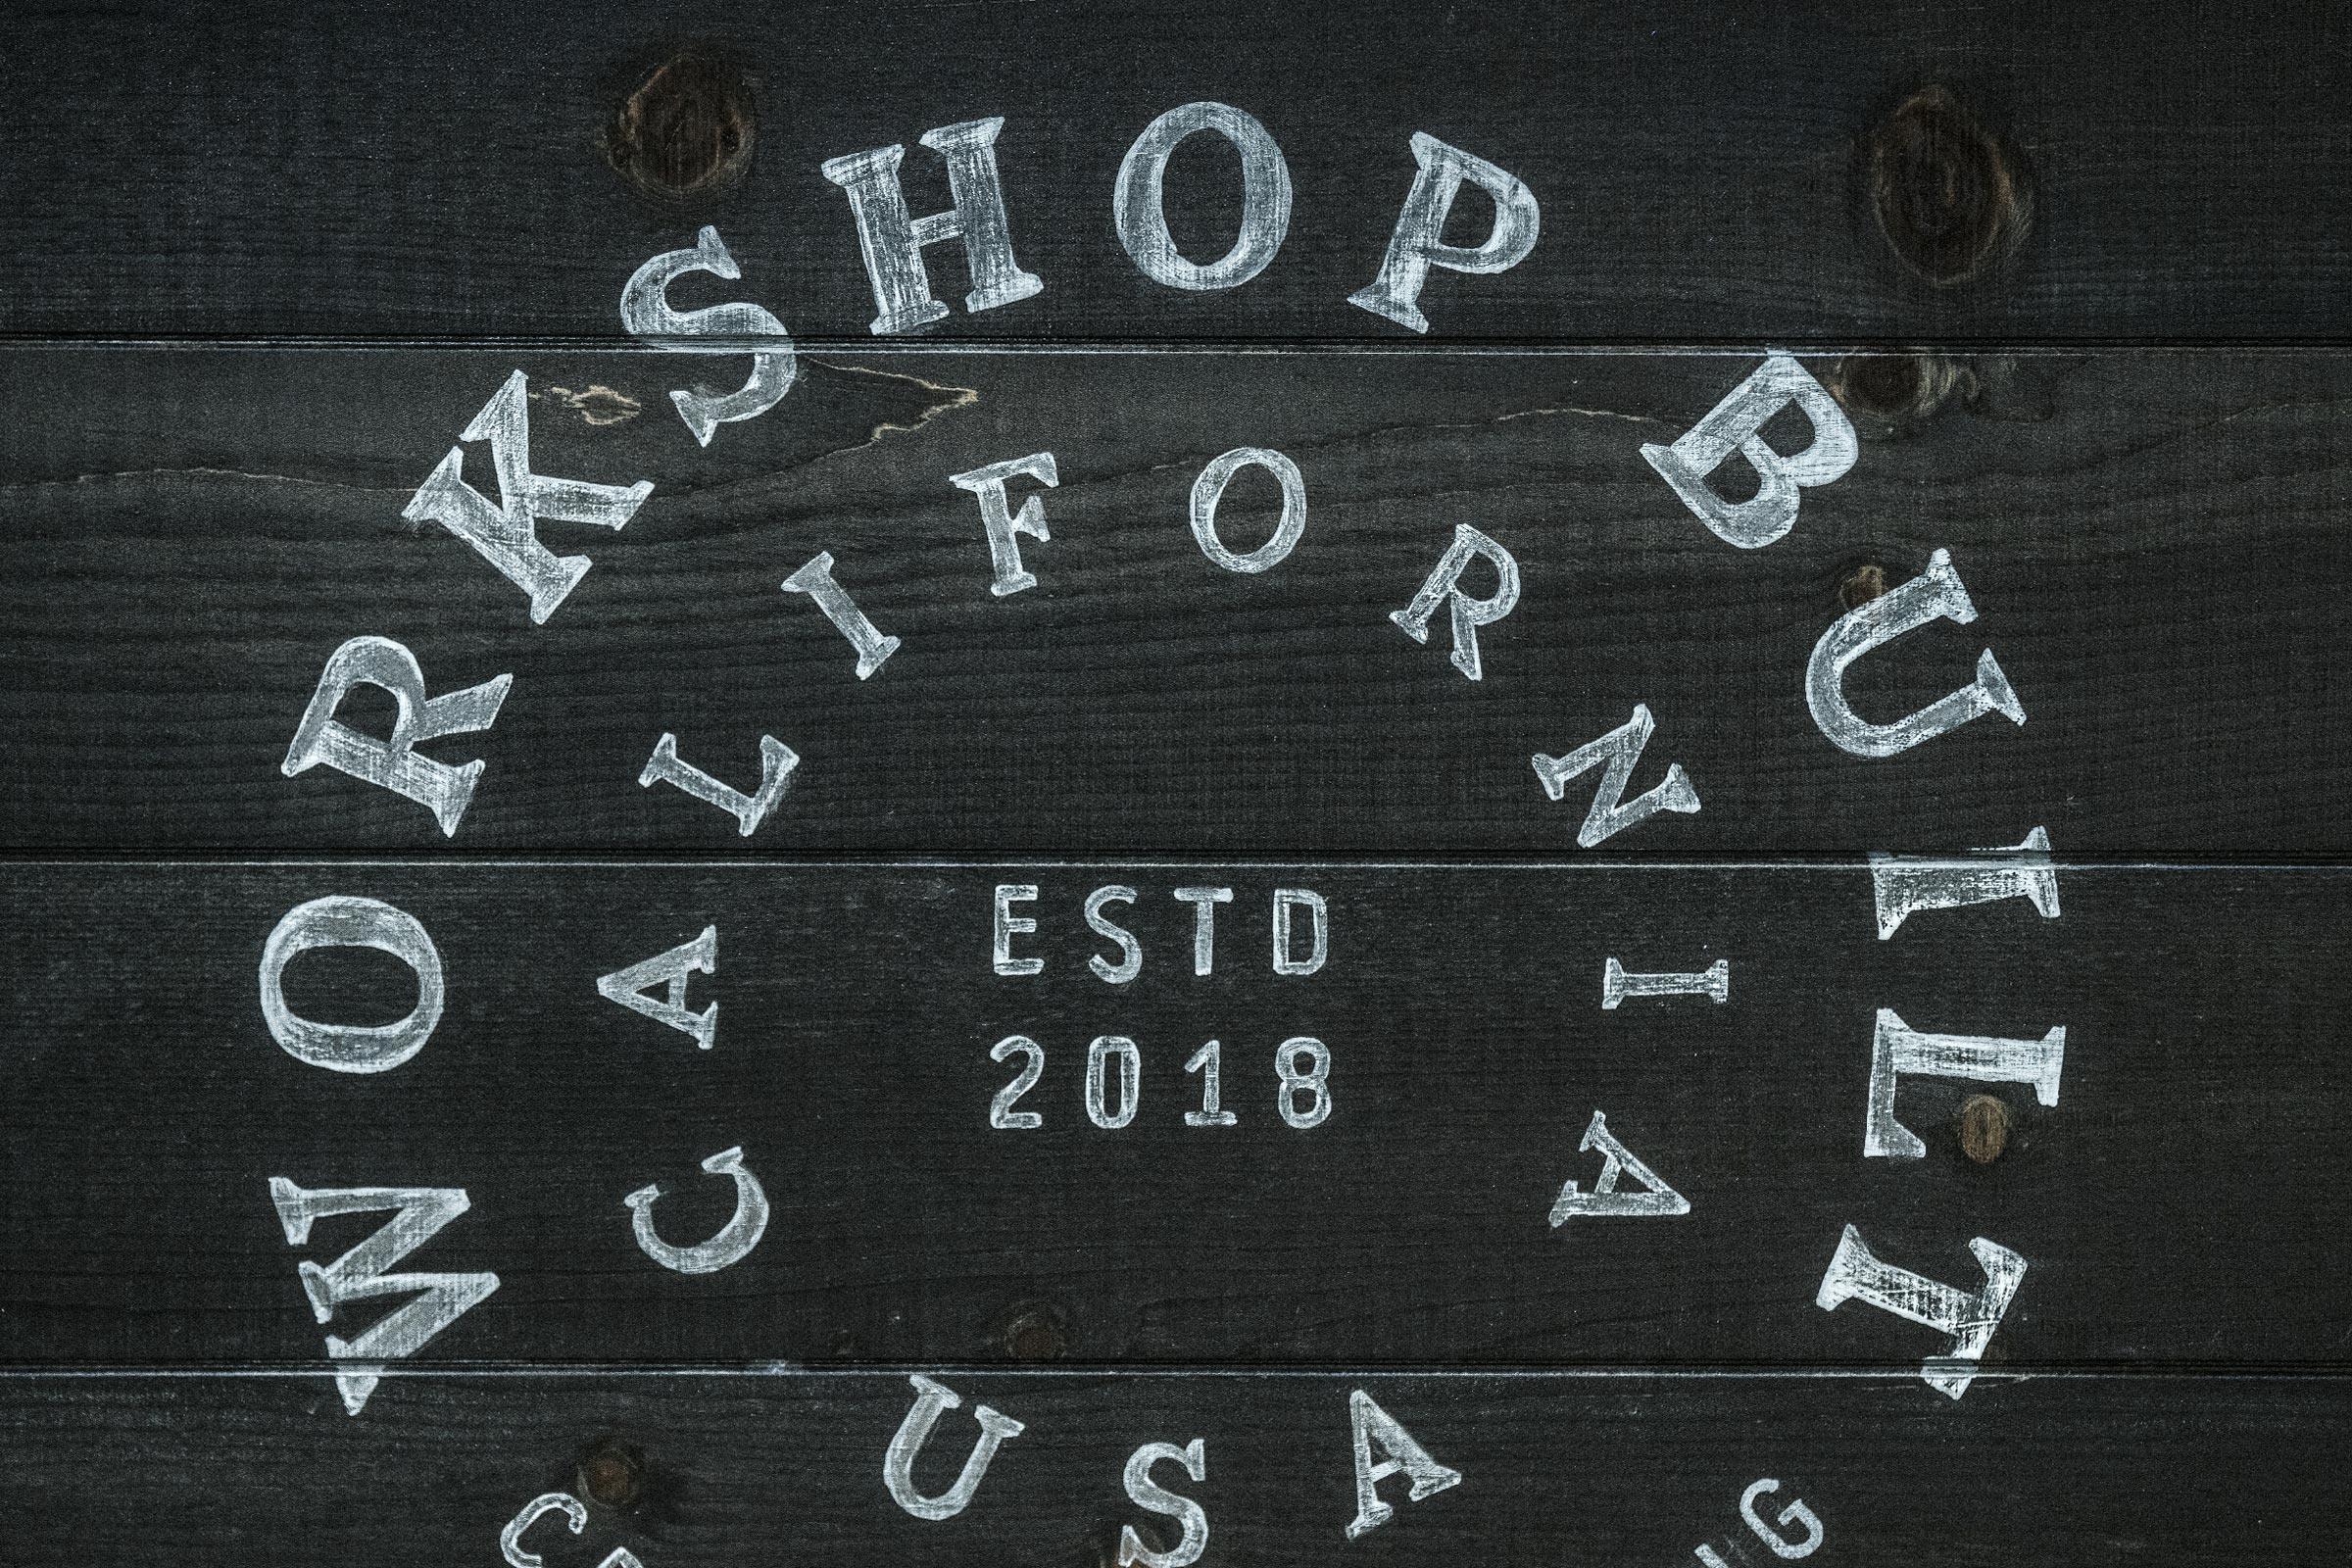 WORKSHOP BUILT
CALIFORNIA
ESTD
2018
USA